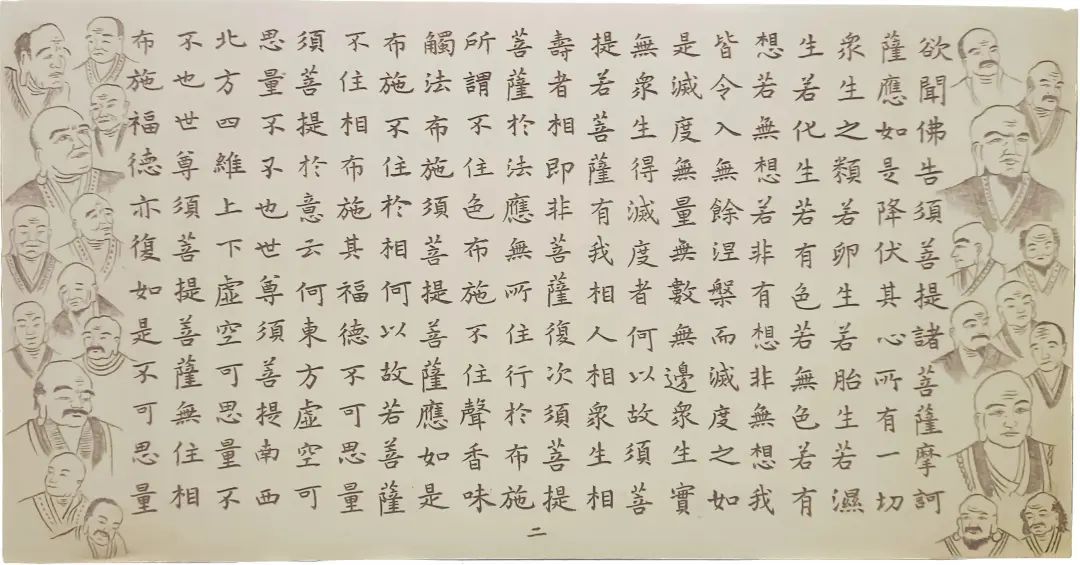 欲聞佛告須善提諸菩薩摩訶
薩應如是降伏其心所有一切
衆生之類若卵生若胎生若濕
生若化生若有色若無色若有
想若無想若非有想非無想我
皆令入無餘涅槃而滅度之如
是滅度無量無數無邊衆生實
無衆生得滅度者何以故須菩
提若菩薩有我相人相衆生相
壽者相即非菩薩復次須菩提
菩薩於法應無所住行於布施
所謂不住色布施不住聲香味
觸法布施須菩提善薩應如是
布施不住於相何以故若善薩
不住相布施其福德不可思量
須善提於意云何東方虛空可
思量不不也世尊須善提南西
北方四維上下虛空可思量不
不也世尊須菩提善薩無住相
布施福德亦復如是不可思量
二